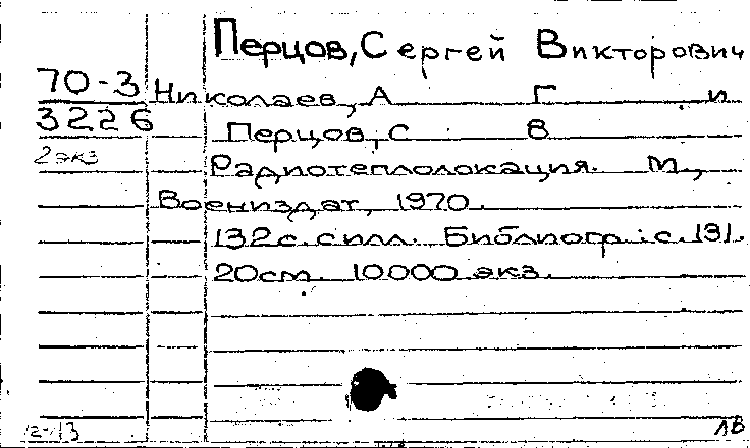 Перцов, Сергей Викторович
70-3
3226
2 экз
Николаев, А Г и
Перцов, С В
Радиотеплолокация. М.,
Воениздат, 1970.
132с. с илл. Библиогр.: с. 131.
20см. 10000 экз.
ЛВ